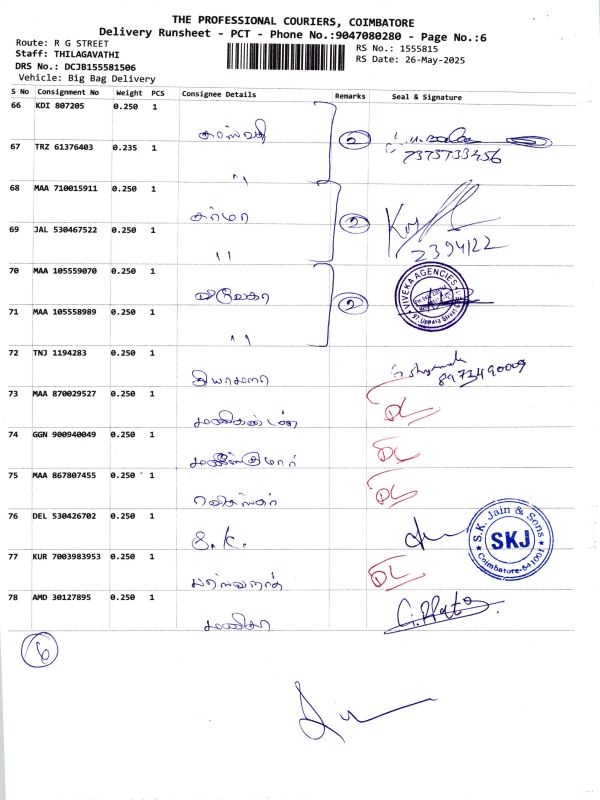 THE PROFESSIONAL COURIERS, COIMBATORE
Delivery Runsheet - PCT - Phone No.:9047080280 - Page No.:6
Route: R G STREET
Staff: THILAGAVATHI
DRS No.: DCJB155581506
Vehicle: Big Bag Delivery
RS No.: 1555815
RS Date: 26-May-2025
S No Consignment No Weight PCS Consignee Details Remarks Seal & Signature
66 KDI 807205 0.250 1
2
67 TRZ 61376403 0.235 1 "
7373733456
68 MAA 710015911 0.250 1 சர்மா
2
69 JAL 530467522 0.250 1 "
2394122
70 MAA 105559070 0.250 1 விவேகா
2
VIVEKA AGENCIES
71 MAA 105558989 0.250 1 "
72 TNJ 1194283 0.250 1 சியாமளா
8973490009
73 MAA 870029527 0.250 1 மணிகண்டன்
DL
74 GGN 900940049 0.250 1
DL
75 MAA 867807455 0.250 1
DL
76 DEL 530426702 0.250 1 S.K.
S.K. Jain & Sons
SKJ
Coimbatore-641001
77 KUR 7003983953 0.250 1 DL
78 AMD 30127895 0.250 1
6